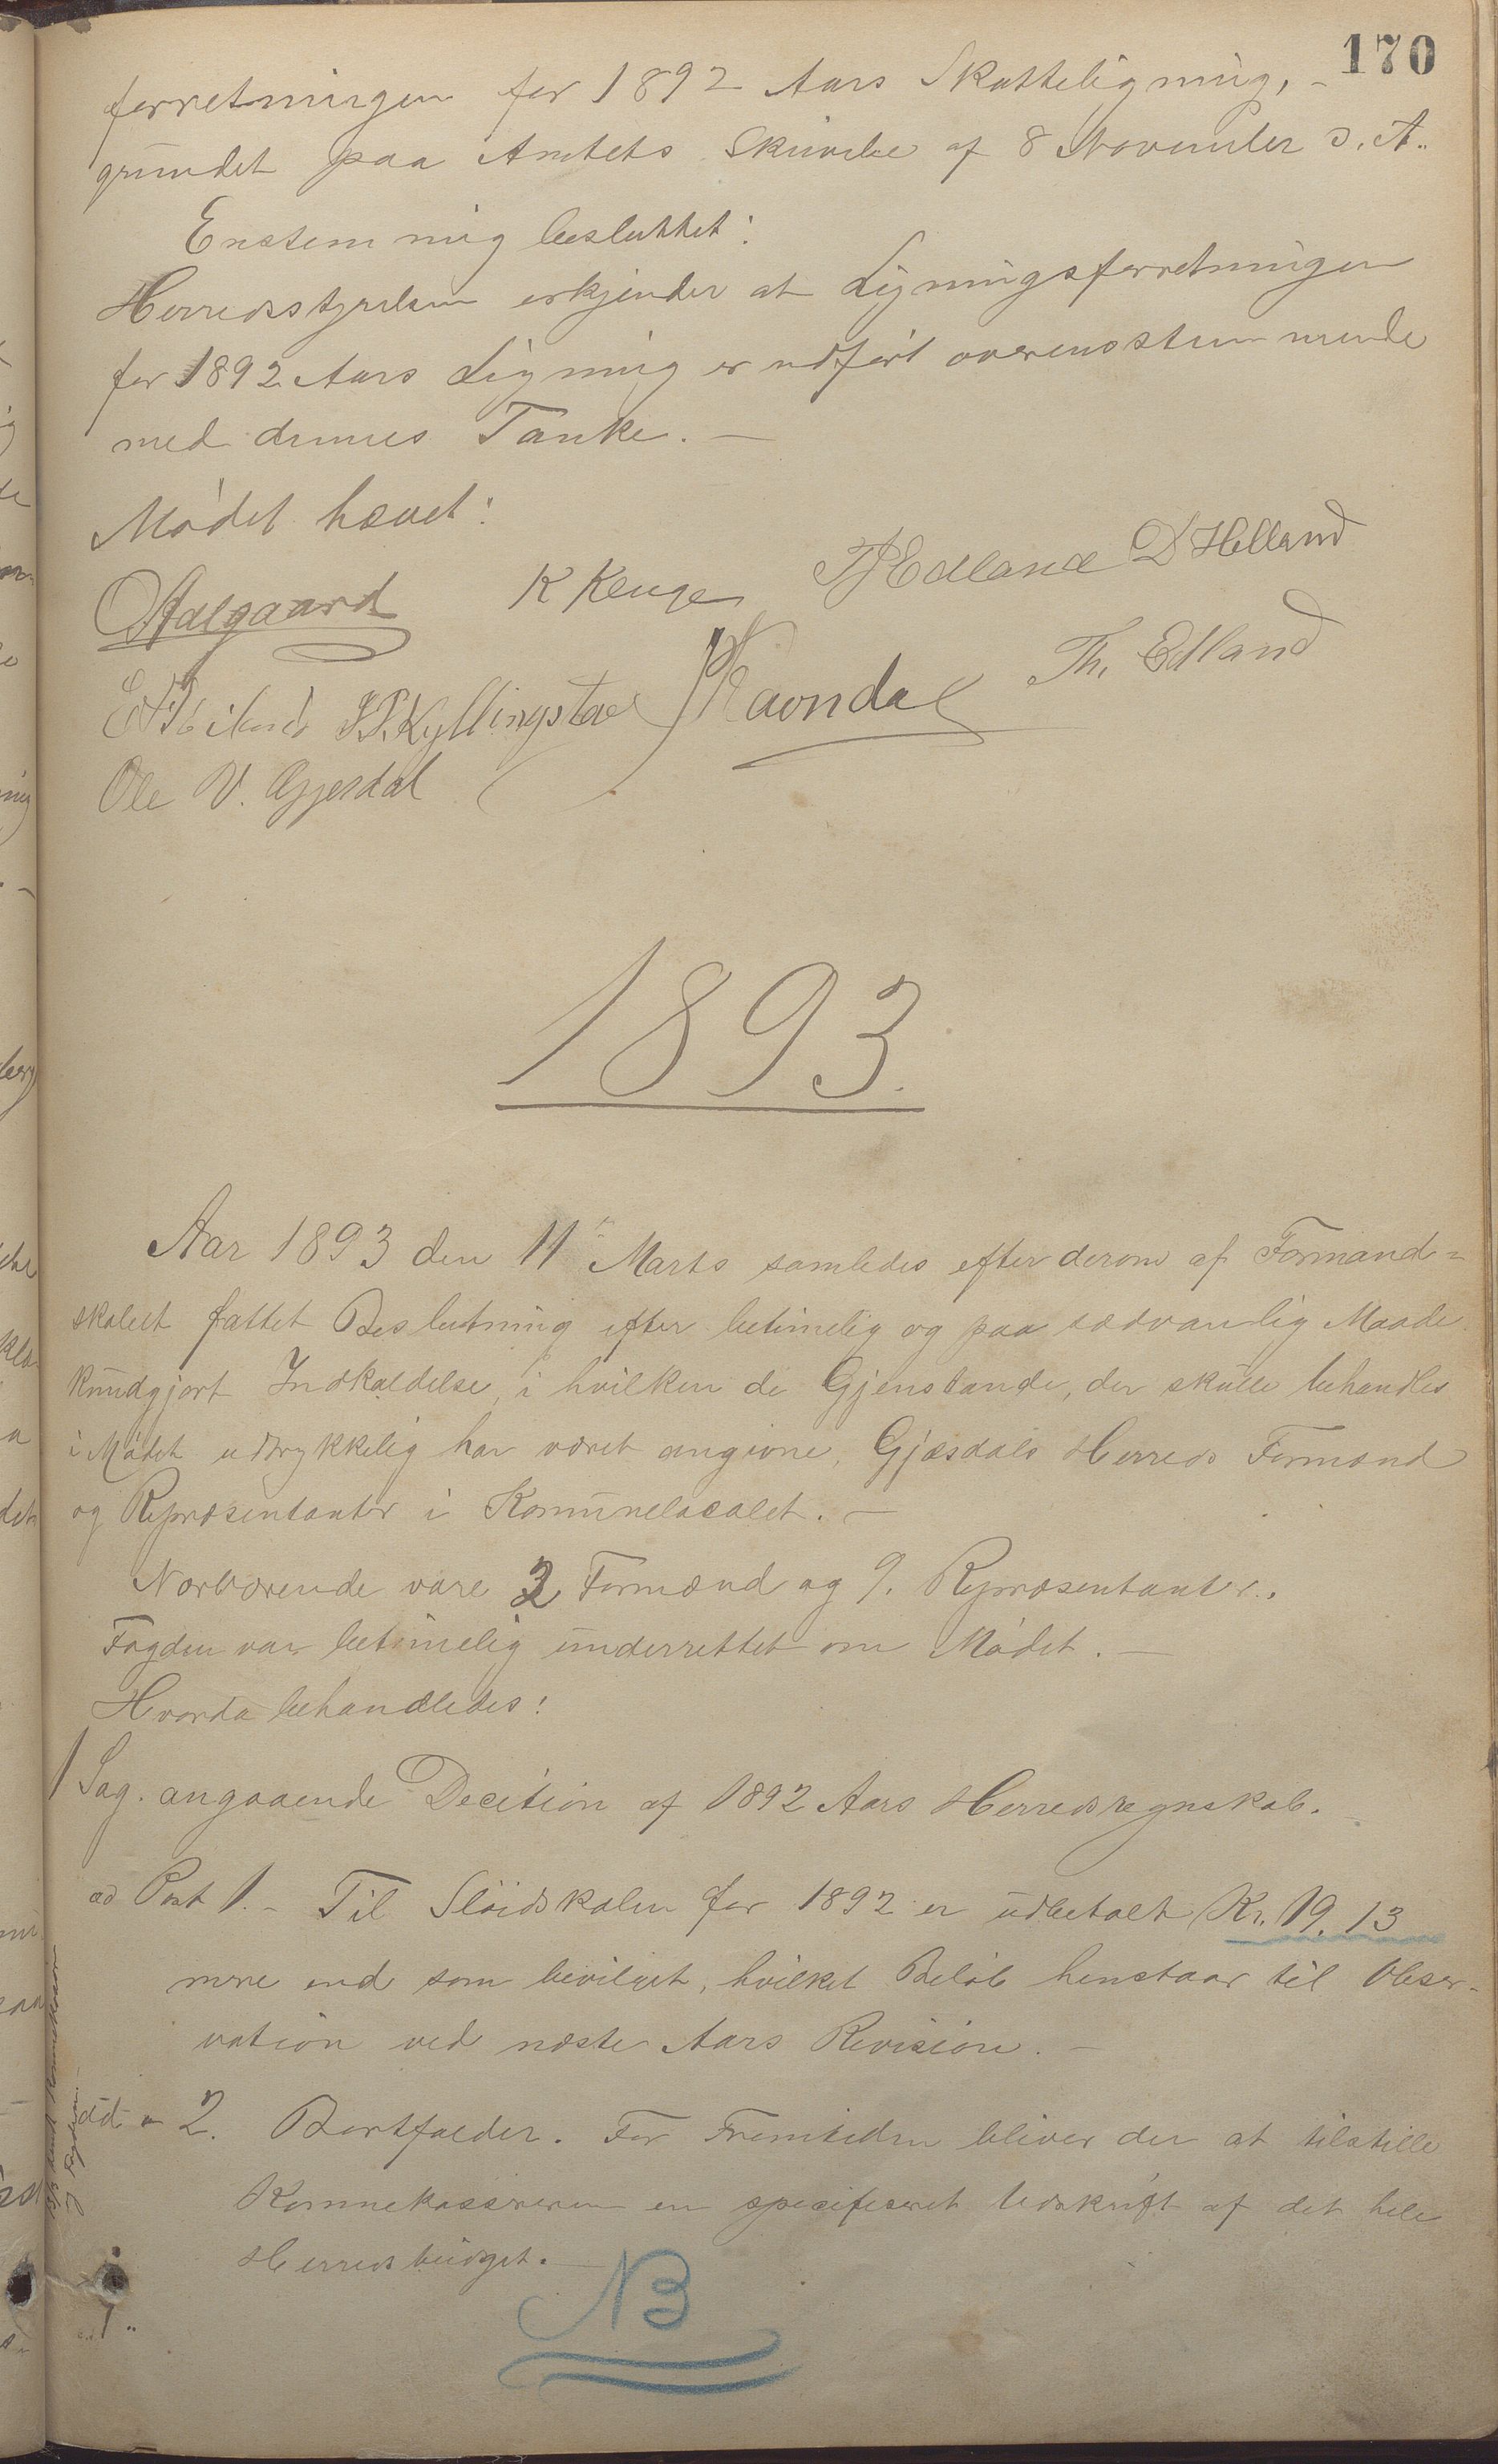 170
forretningen for 1892 Aars Skatteligning, -
grundet paa Amtets Skrivelse af 8 November d. A.
Enstemmig besluttet:
Herredsstyrelsen erkjender at Ligningsforretningen
for 1892 Aars Ligning er udført overensstemmende
med dennes Tanke. —
Mødet hævet:
OAalgaard K Kluge TJEdland D Helland
S.S.Kyllingstad Ravndal Th. Edland
Ole V. Gjesdal
1893.
Aar 1893 den 11 Marts samledes efter derom af Formand-
skabet fattet Beslutning efter betimelig og paa sædvanlig Maade
kundgjort Indkaldelse, i hvilken de Gjenstande, der skulle behandles
i Mødet udtrykkelig har været angivne, Gjæsdals Herreds Formænd
og Repræsentanter i Komunelocalet. —
Nærværende vare 3 Formænd og 9. Repræsentanter.
Fogden var betimelig underrettet om Mødet. —
Hvorda behandledes:
1 Sag. angaaende Decition af 1892 Aars Herredsregnskab.
ad Post 1. - Til Sløidskolen for 1892 er udbetalt Kr. 19.13
mere end som bevilget, hvilket Beløb henstaar til Obser-
vation ved næste Aars Revision. —
ad „ 2. Bortfalder. For Fremtiden bliver der at tilstille
Komnekassereren en specificeret Udskrift af det hele
Herredsbudget. —
NB